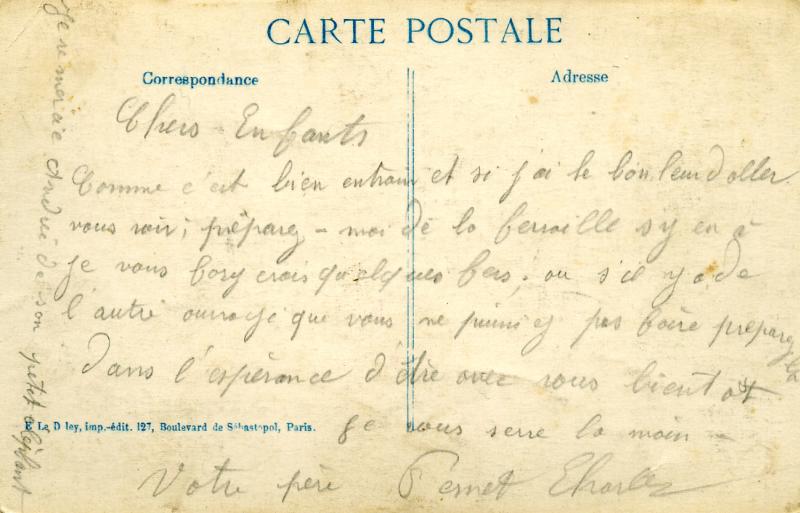 CARTE POSTALE
Correspondance
Adresse
Chers Enfants
Comme c'est bien entrain et si j'ai le bonheur d'aller
vous voir, préparez-moi de la ferraille s'y en a
je vous forgerais quelques fers, ou s'il y a de
l'autre ouvrage que vous ne puissiez pas faire préparez la
dans l'espérance d'être avec vous bientot
Je vous serre la main -
Votre père Pernet Charles
E. Le D ley, imp.-édit. 127, Boulevard de Sébastopol, Paris.
Je remercie Andrée de son petit